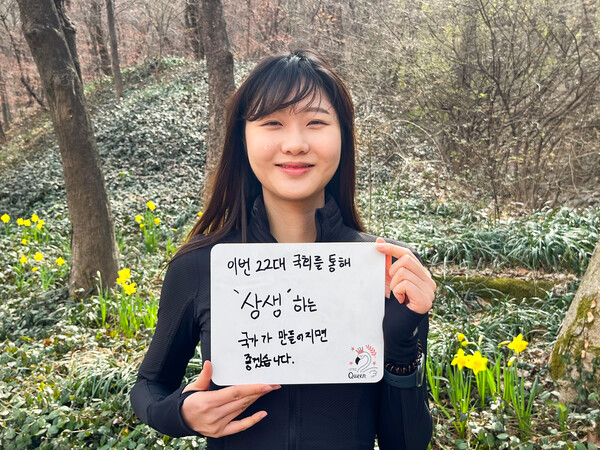 이번 22대 국회를 통해
'상생'하는
국가가 만들어지면
좋겠습니다.
Queen